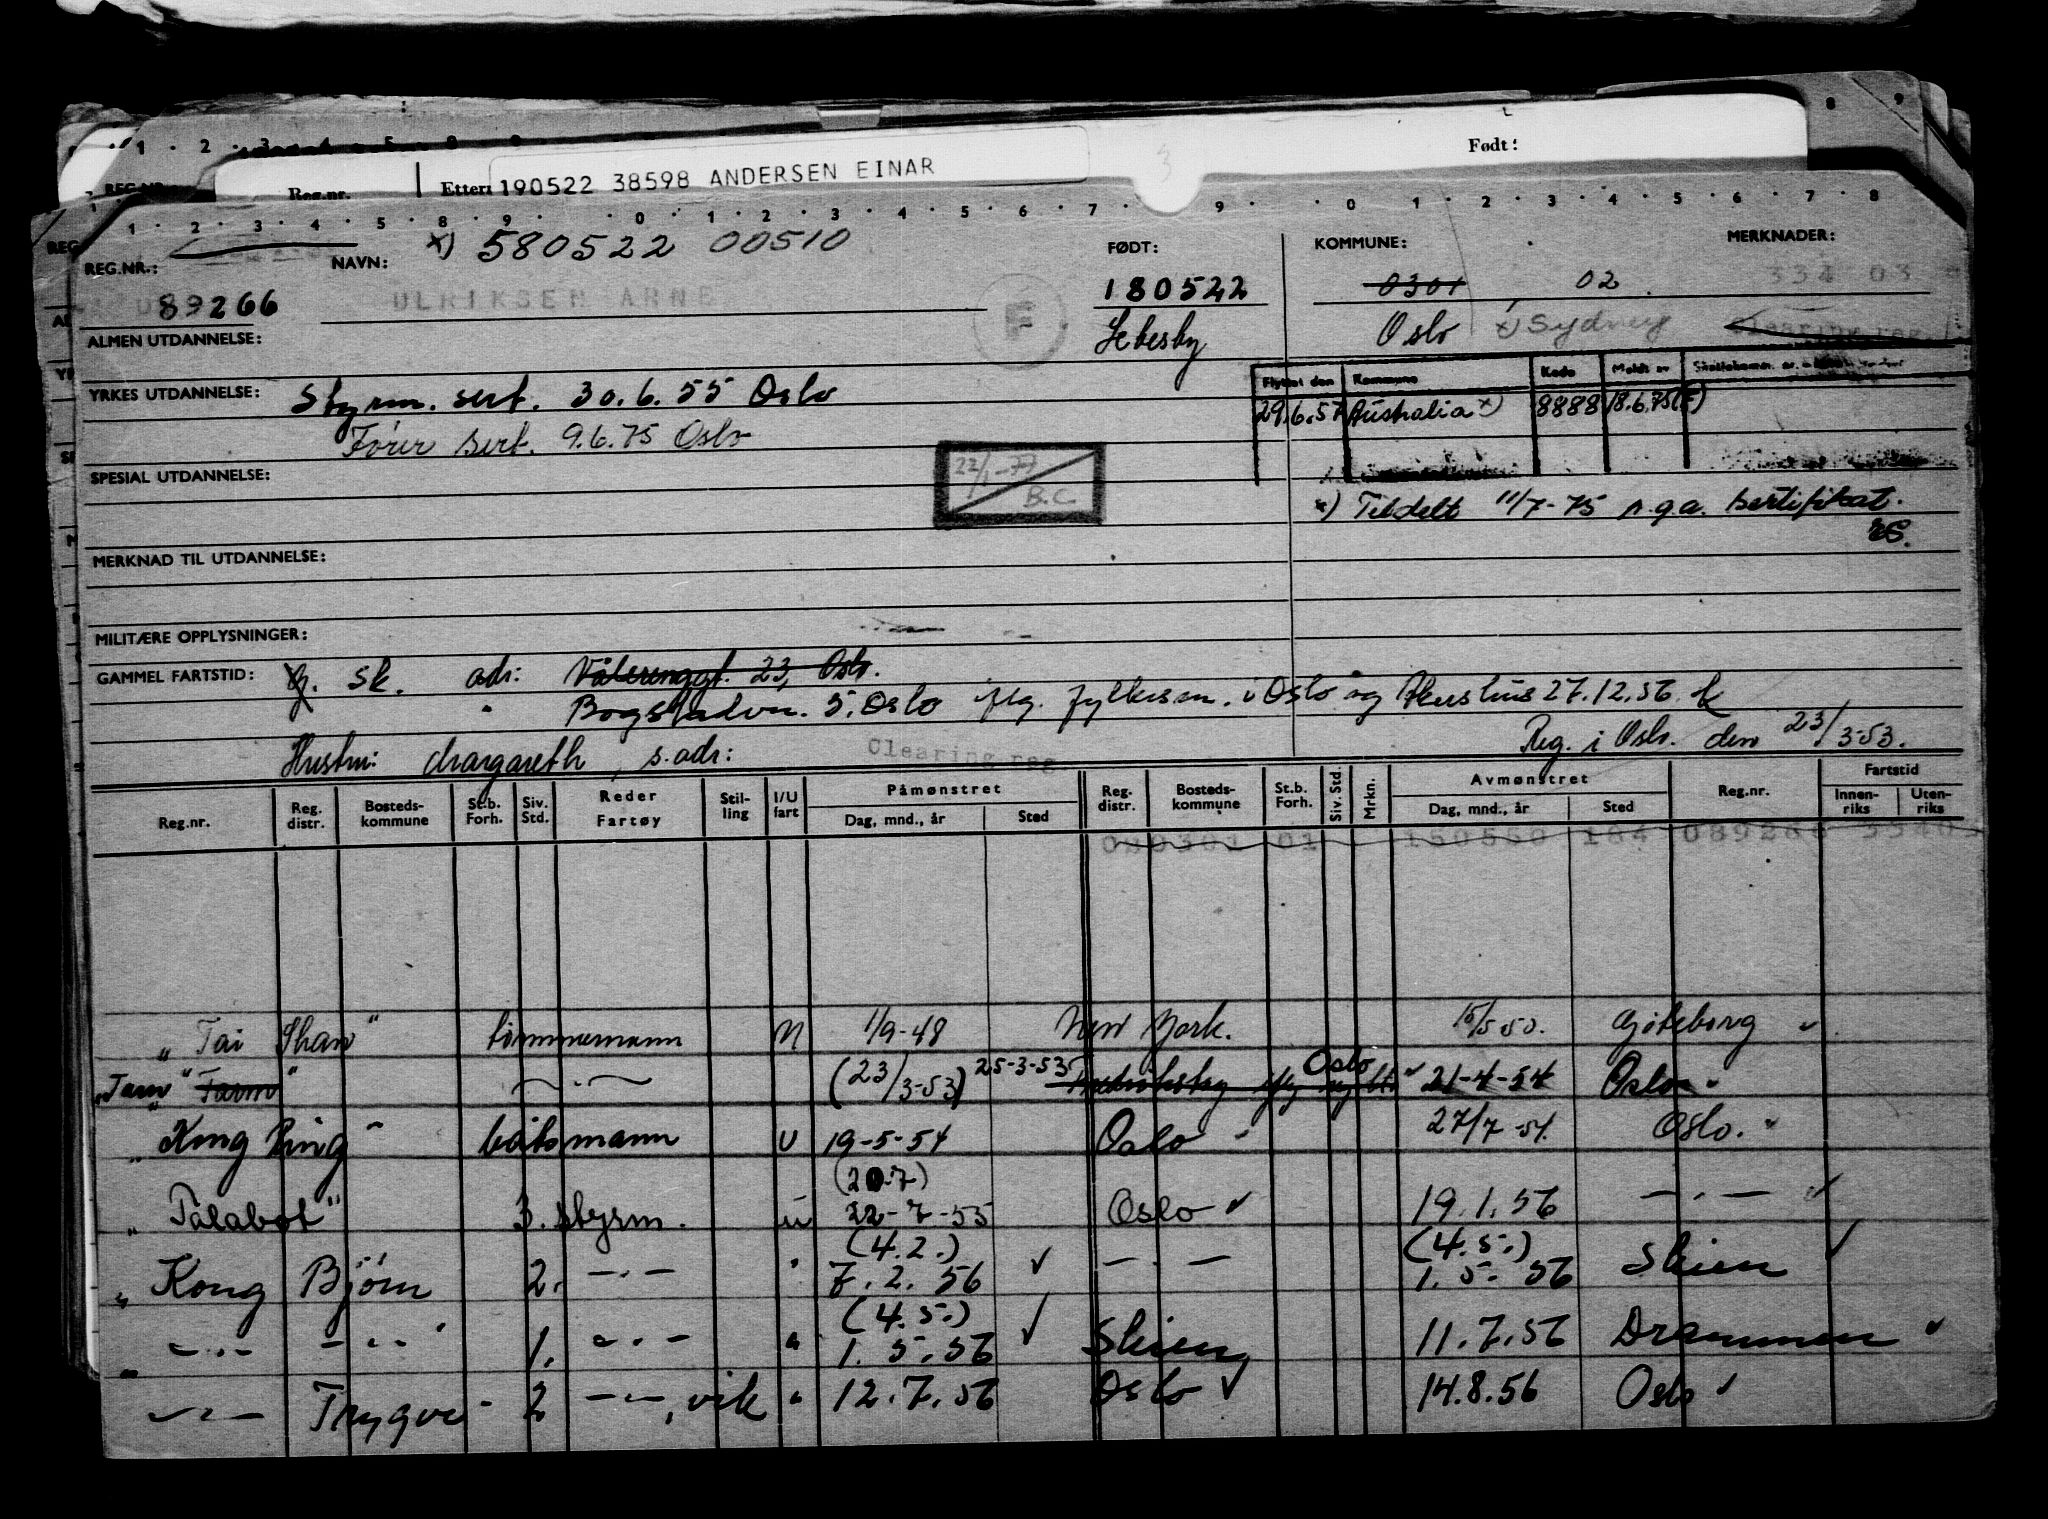 Født:
Reg.nr.
Ettern
190522 38598 ANDERSEN EINAR
REG.NR.: NAVN: x) 580522 00510 FØDT: KOMMUNE: MERKNADER:
89266 ULRIKSEN ARNE F 180522 0301 02 334 03
ALMEN UTDANNELSE: Lebesby Oslo x) Sydney Clearing reg.
Flyttet den Kommune Kode Meldt av
YRKES UTDANNELSE: Styrm. sert. 30.6.55 Oslo
29.6.57 Australia x) 8888 18.6.75 (F)
Fører sert. 9.6.75 Oslo
SPESIAL UTDANNELSE:
22/1-77 B.C.
x) Tildelt 11/7-75 p.g.a. sertifikat.
ES.
MERKNAD TIL UTDANNELSE:
MILITÆRE OPPLYSNINGER:
GAMMEL FARTSTID: sk. adr: Vålerenggt. 23, Oslo.
" Bogstadvn. 5, Oslo iflg. fylkesm. i Oslo og Akershus 27.12.56.
Hustru: Margareth, s. adr: Clearing reg
Reg. i Oslo. den 23/3-53.
Reg.nr. Reg. distr. Bosteds- kommune St.b. Forh. Siv. Std. Reder Fartøy Stil- ling I/U fart Påmønstret Dag, mnd., år Sted Reg. distr. Bosteds- kommune St.b. Forh. Siv. Std. Mrkn. Avmønstret Dag, mnd., år Sted Reg.nr. Fartstid Innen- riks Uten- riks
090301 01 150550 164 089266 3340
"Tai Shan" tømmermann U 1/9-48 New York. 15/5 50. Gøteborg
"Tam" Farm" — . — (23/3-53) 25-3-53 Oslo 21-4-54 Oslo
"Kong Ring" båtsmann U 19-5-54 Oslo 27/7-54. Oslo.
(20.7)
"Talabot" 3. styrm. u 22-7-55 Oslo 19.1.56 — . —
(4.2.) (4.5.)
" Kong Bjørn 2. — . — " 7.2.56 — . — 1.5.56 Skien
(4.5.)
" — . — — . — 1. — . — " 1.5.56 Skien 11.7.56 Drammen
— . — Trygve 2 — . —, vik " 12.7.56 Oslo 14.8.56 Oslo